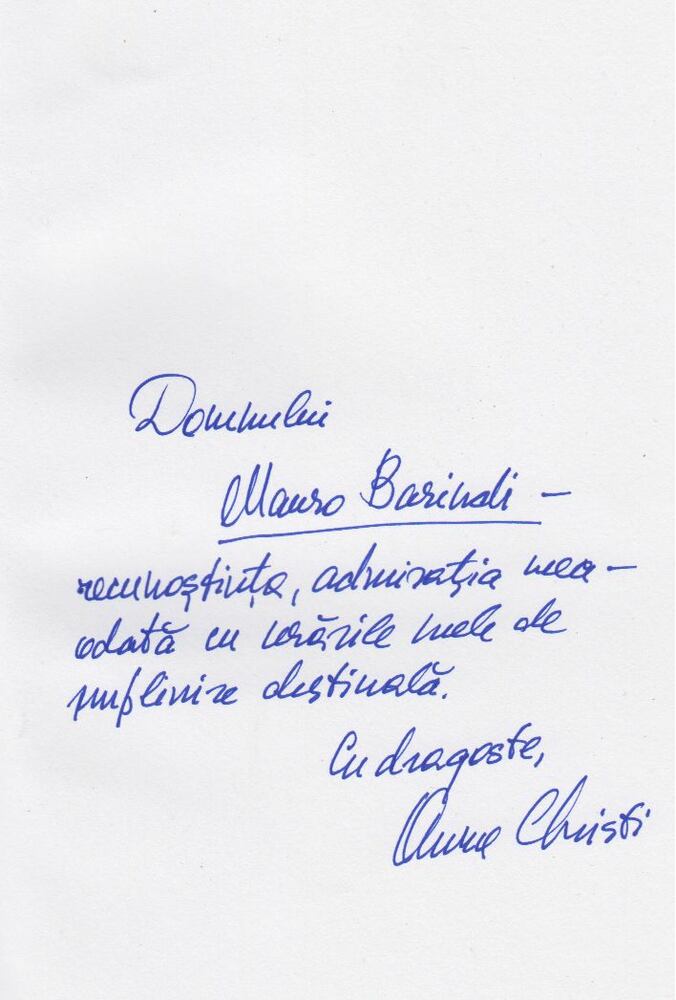 Domnului
Mauro Barindi –
recunoștința, admirația mea –
odată cu urările mele de
împlinire destinală.
Cu dragoste,
Anna Christi